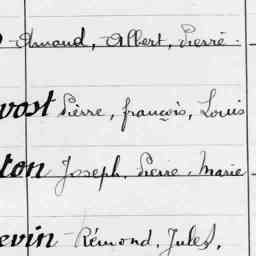 Armand, Albert, Pierre.
vost Pierre, françois, Louis
ton Joseph, Pierre, Marie
evin Rémond, Jules,